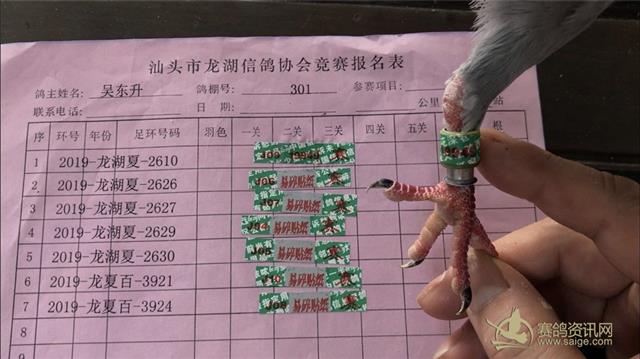 汕头市龙湖信鸽协会竞赛报名表
鸽主姓名: 吴东升 鸽棚号: 301 参赛项目:
联系电话: 日期: 公里 站
序 环号 年份 足环号码 羽色 一关 二关 三关 四关 五关 根
1 2019-龙湖夏-2610
2 2019-龙湖夏-2626 易碎贴纸
3 2019-龙湖夏-2627 易碎贴纸
4 2019-龙湖夏-2629 易碎贴纸
5 2019-龙湖夏-2630 易碎贴纸
6 2019-龙夏百-3921 易碎贴纸
7 2019-龙夏百-3924 易碎贴纸
8
赛鸽资讯网
www.saige.com